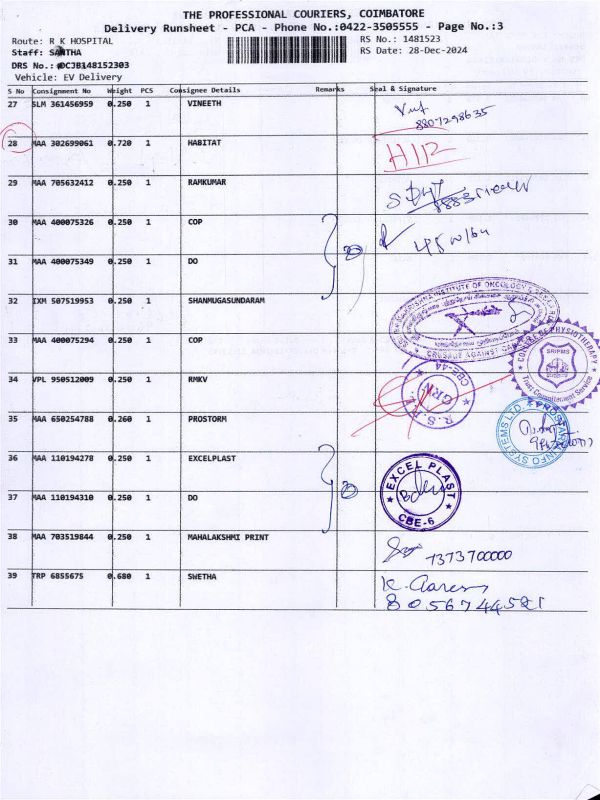 THE PROFESSIONAL COURIERS, COIMBATORE
Delivery Runsheet - PCA - Phone No.:0422-3505555 - Page No.:3
Route: R K HOSPITAL
RS No.: 1481523
Staff: SANTHA
RS Date: 28-Dec-2024
DRS No.: DCJB148152303
Vehicle: EV Delivery
S No Consignment No Weight PCS Consignee Details Remarks Seal & Signature
27 SLM 361456959 0.250 1 VINEETH
8807298635
28 MAA 302699061 0.720 1 HABITAT
29 MAA 705632412 0.250 1 RAMKUMAR
30 MAA 400075326 0.250 1 COP
31 MAA 400075349 0.250 1 DO
32 IXM 507519953 0.250 1 SHANMUGASUNDARAM
INSTITUTE OF ONCOLOGY
CRUSADE AGAINST
33 MAA 400075294 0.250 1 COP
COLLEGE OF PHYSIOTHERAPY
SRIPMS
Trust Commitement Service
34 VPL 950512009 0.250 1 RMKV
CBE-44
35 MAA 650254788 0.260 1 PROSTORM
INFO SYSTEMS LTD.
36 MAA 110194278 0.250 1 EXCELPLAST
EXCEL PLAST
CBE-6
37 MAA 110194310 0.250 1 DO
38 MAA 703519844 0.250 1 MAHALAKSHMI PRINT
7373700000
39 TRP 6855675 0.680 1 SWETHA
8056744521